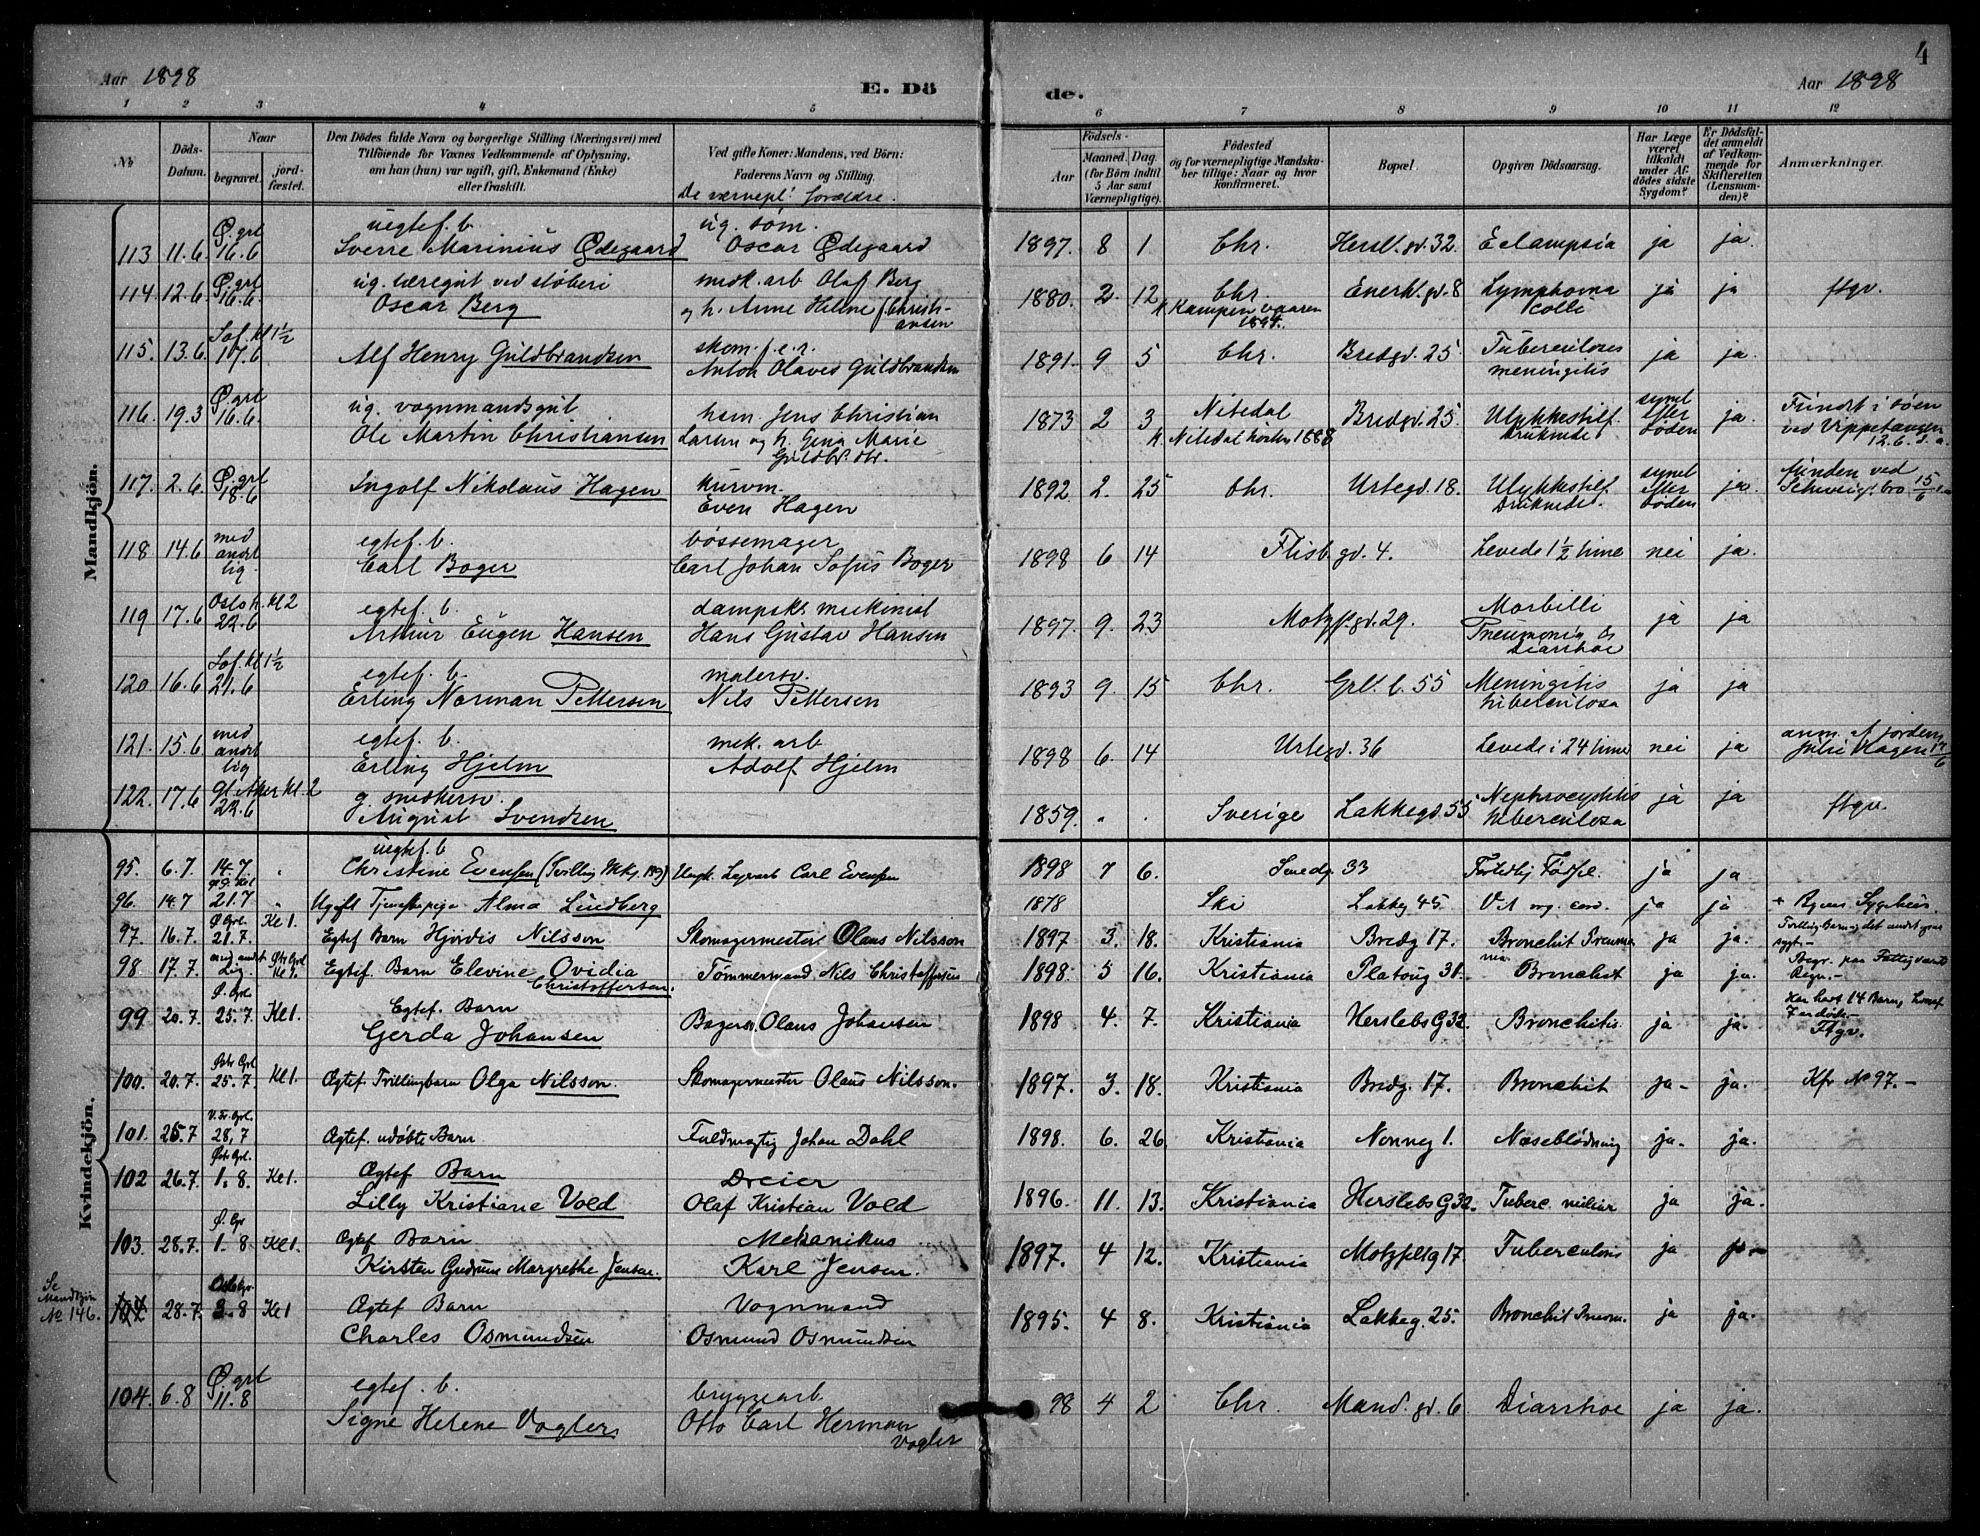 4
Aar 1898
E. Dö
de.
Aar 1898
1 2 3 4 5 6 7 8 9 10 11 12
No
Döds-Datum.
Naar
begravet.
jord-fæstet.
Den Dödes fulde Navn og borgerlige Stilling (Næringsvei) med
Tilföiende for Voxnes Vedkommende af Oplysning,
om han (hun) var ugift, gift, Enkemand (Enke)
eller fraskilt.
Ved gifte Koner: Mandens, ved Börn:
Faderens Navn og Stilling.
De værnepl. forældre.
Födsels-
Aar
Maaned.
Dag.
(for Börn indtil
5 Aar samt
Værnepligtige).
Födested
og for værnepligtige Mandska-
ber tillige: Naar og hvor
konfirmeret.
Bopæl.
Opgiven Dödsaarsag.
Har Læge
været
tilkaldt
under Af-
dödes sidste
Sygdom?
Er Dödsfal-
det anmeldt
af Vedkom-
mende for
Skifteretten
(Lensman-
den)?
Anmærkninger.
Mandkjön.
113 11.6 Ø. grl 16.6 uegtef. b. Sverre Marinius Ødegaard ug. søm. Oscar Ødegaard 1897. 8 1 Chr. Hersl. gd. 32. Eclampsia ja ja.
114. 12.6 Ø. grl 16.6. ug. læregut ved støberi Oscar Berg mek. arb Olaf Berg og h. Anne Helene f. Christiansen 1880. 2. 12 Chr. k. Kampen vaaren Enerh. gd. 8 Lymphoma colli ja ja ftgv.
115. 13.6 Sof. kl 1½ 17.6 Alf Henry Guldbrandsen skom. f.e.r. Anton Olaves Guldbrandsen 1891. 9 5 Chr. Bredgd. 25. Tuberculoses meningitis ja ja.
116. 19.3 Ø. grl 16.6. ug. vognmandsgut Ole Martin Christiansen hom. Jens Christian Larsen og h. Gina Marie Guldbr. dtr. 1873 2 3 Nitedal k. Nitedal høsten 1888 Bredgd. 25 Ulykkestilf. Druknede synet efter døden ja. Fundet i søen ved Vippetangen 12.6. d. a.
117. 2.6 Ø. grl 18.6 Ingolf Nikolaus Hagen kurvm. Even Hagen 1892 2. 25 Chr. Urtegd. 18. Ulykkestilf. Druknede. synet efter døden ja. funden ved Schweig. bro 15/6
118 14.6 med andet lig. egtef. b. Carl Boger bøssemager Carl Johan Sofus Boger 1898 6 14 Flisb. gd. 4. Levede 1½ time nei ja.
119 17.6 Oslo k. kl 2 22.6 egtef. b. Arthur Eugen Hansen dampsk. maskinist Hans Gustav Hansen 1897. 9. 23 Motzf. gd. 29. Morbilli Pneumonia & Diarrhoe ja ja
120 16.6 Sof. kl 1½ 21.6 egtef. b. Erling Norman Pettersen malersv. Nils Pettersen 1893 9. 15 Chr. Grl. l. 55 Meningitis tuberculosa ja ja
121. 15.6 med andet lig egtef. b. Erling Hjelm mek. arb. Adolf Hjelm 1898 6. 14 Urtegd. 36 Levede i 24 timer nei ja anm. af jordem. Julie Hagen 17/6
122. 17.6 Gl. Aker kl. 2 22.6 g. snedkersv. August Svendsen 1859. " . Sverige Lakkegd. 55 Nephrocystitis tuberculosa ja ja ftgv.
Kvindekjön.
95. 6.7 14.7. " uegtef. b Christine Evensen (Tvilling Carl Evensen 1898 7 6. 33 Fødsel. ja ja
96. 14.7 21.7 " Ugift Tjenestepige Alma Lindberg 1878 Ski Lakkeg 45. ja ja + Byens Sygehus.
97. 16.7. Ø Grl. 21.7. Kl 1. Egtef Barn Hjørdis Nilsson Skomagermester Olaus Nilsson 1897 3. 18. Kristiania Bredg 17. Bronchit Pneumo nia ja ja.
98. 17.7 med andet Lig Østr Grl Kl 1. Egtef. Barn Elevine Ovidia Christoffersen. Tømmermand Nils Christoffersen 1898. 5 16. Kristiania Platoug 31. Bronchit ja ja.
99 20.7. Ø. Grl 25.7. Kl 1. Egtef. Barn Gerda Johansen Bagersv. Olaus Johansen 1898 4. 7. Kristiania Herslebs G 32. Bronchitis. ja ja. Har havt 14 Barn, hvoraf 7 er døde. Ftgv.
100. 20.7. Østr Grl 25.7. Kl 1. Ægtef. Tvillingbarn Olga Nilsson. Skomagermester Olaus Nilsson. 1897. 3. 18. Kristiania Bredg. 17. Bronchit ja- ja. Kfr No 97.-
101. 25.7 V. Fr. Grl. 28,7 Ægtef. udøbte Barn Fuldmægtig Johan Dahl 1898. 6. 26. Kristiania Nonneg 1. Næseblødning ja. ja.
102 26.7. Østr Grl. 1.8. Kl 1. Ægtef Barn Lilly Kristiane Vold Dreier Olaf Kristian Vold 1896. 11. 13. Kristiania Herslebs G 32. Tuberc. miliar ja ja.
103. 28.7. Ø. Gr 1.8. Kl 1. Ægtef Barn Kirsten Gudrun Margrethe Jensen. Mekanikus Karl Jensen. 1897. 4 12. Kristiania Motzfelsg 17. Tuberculosis ja ja
Se Mandkjön No 146. 104 28.7. Oslo Gr. 2.8 Kl 1 Ægtef Barn Charles Osmundsen Vognmand Osmund Osmundsen 1895. 4 8. Kristiania Lakkeg. 25. Bronchit Pneum. ja ja.
104. 6.8 Ø grl 11.8 egtef. b. Signe Helene Vogler bryggearb. Otto Carl Herman Vogler 98 4 2 Chr. Mand. gd. 6 Diarrhoe ja ja.